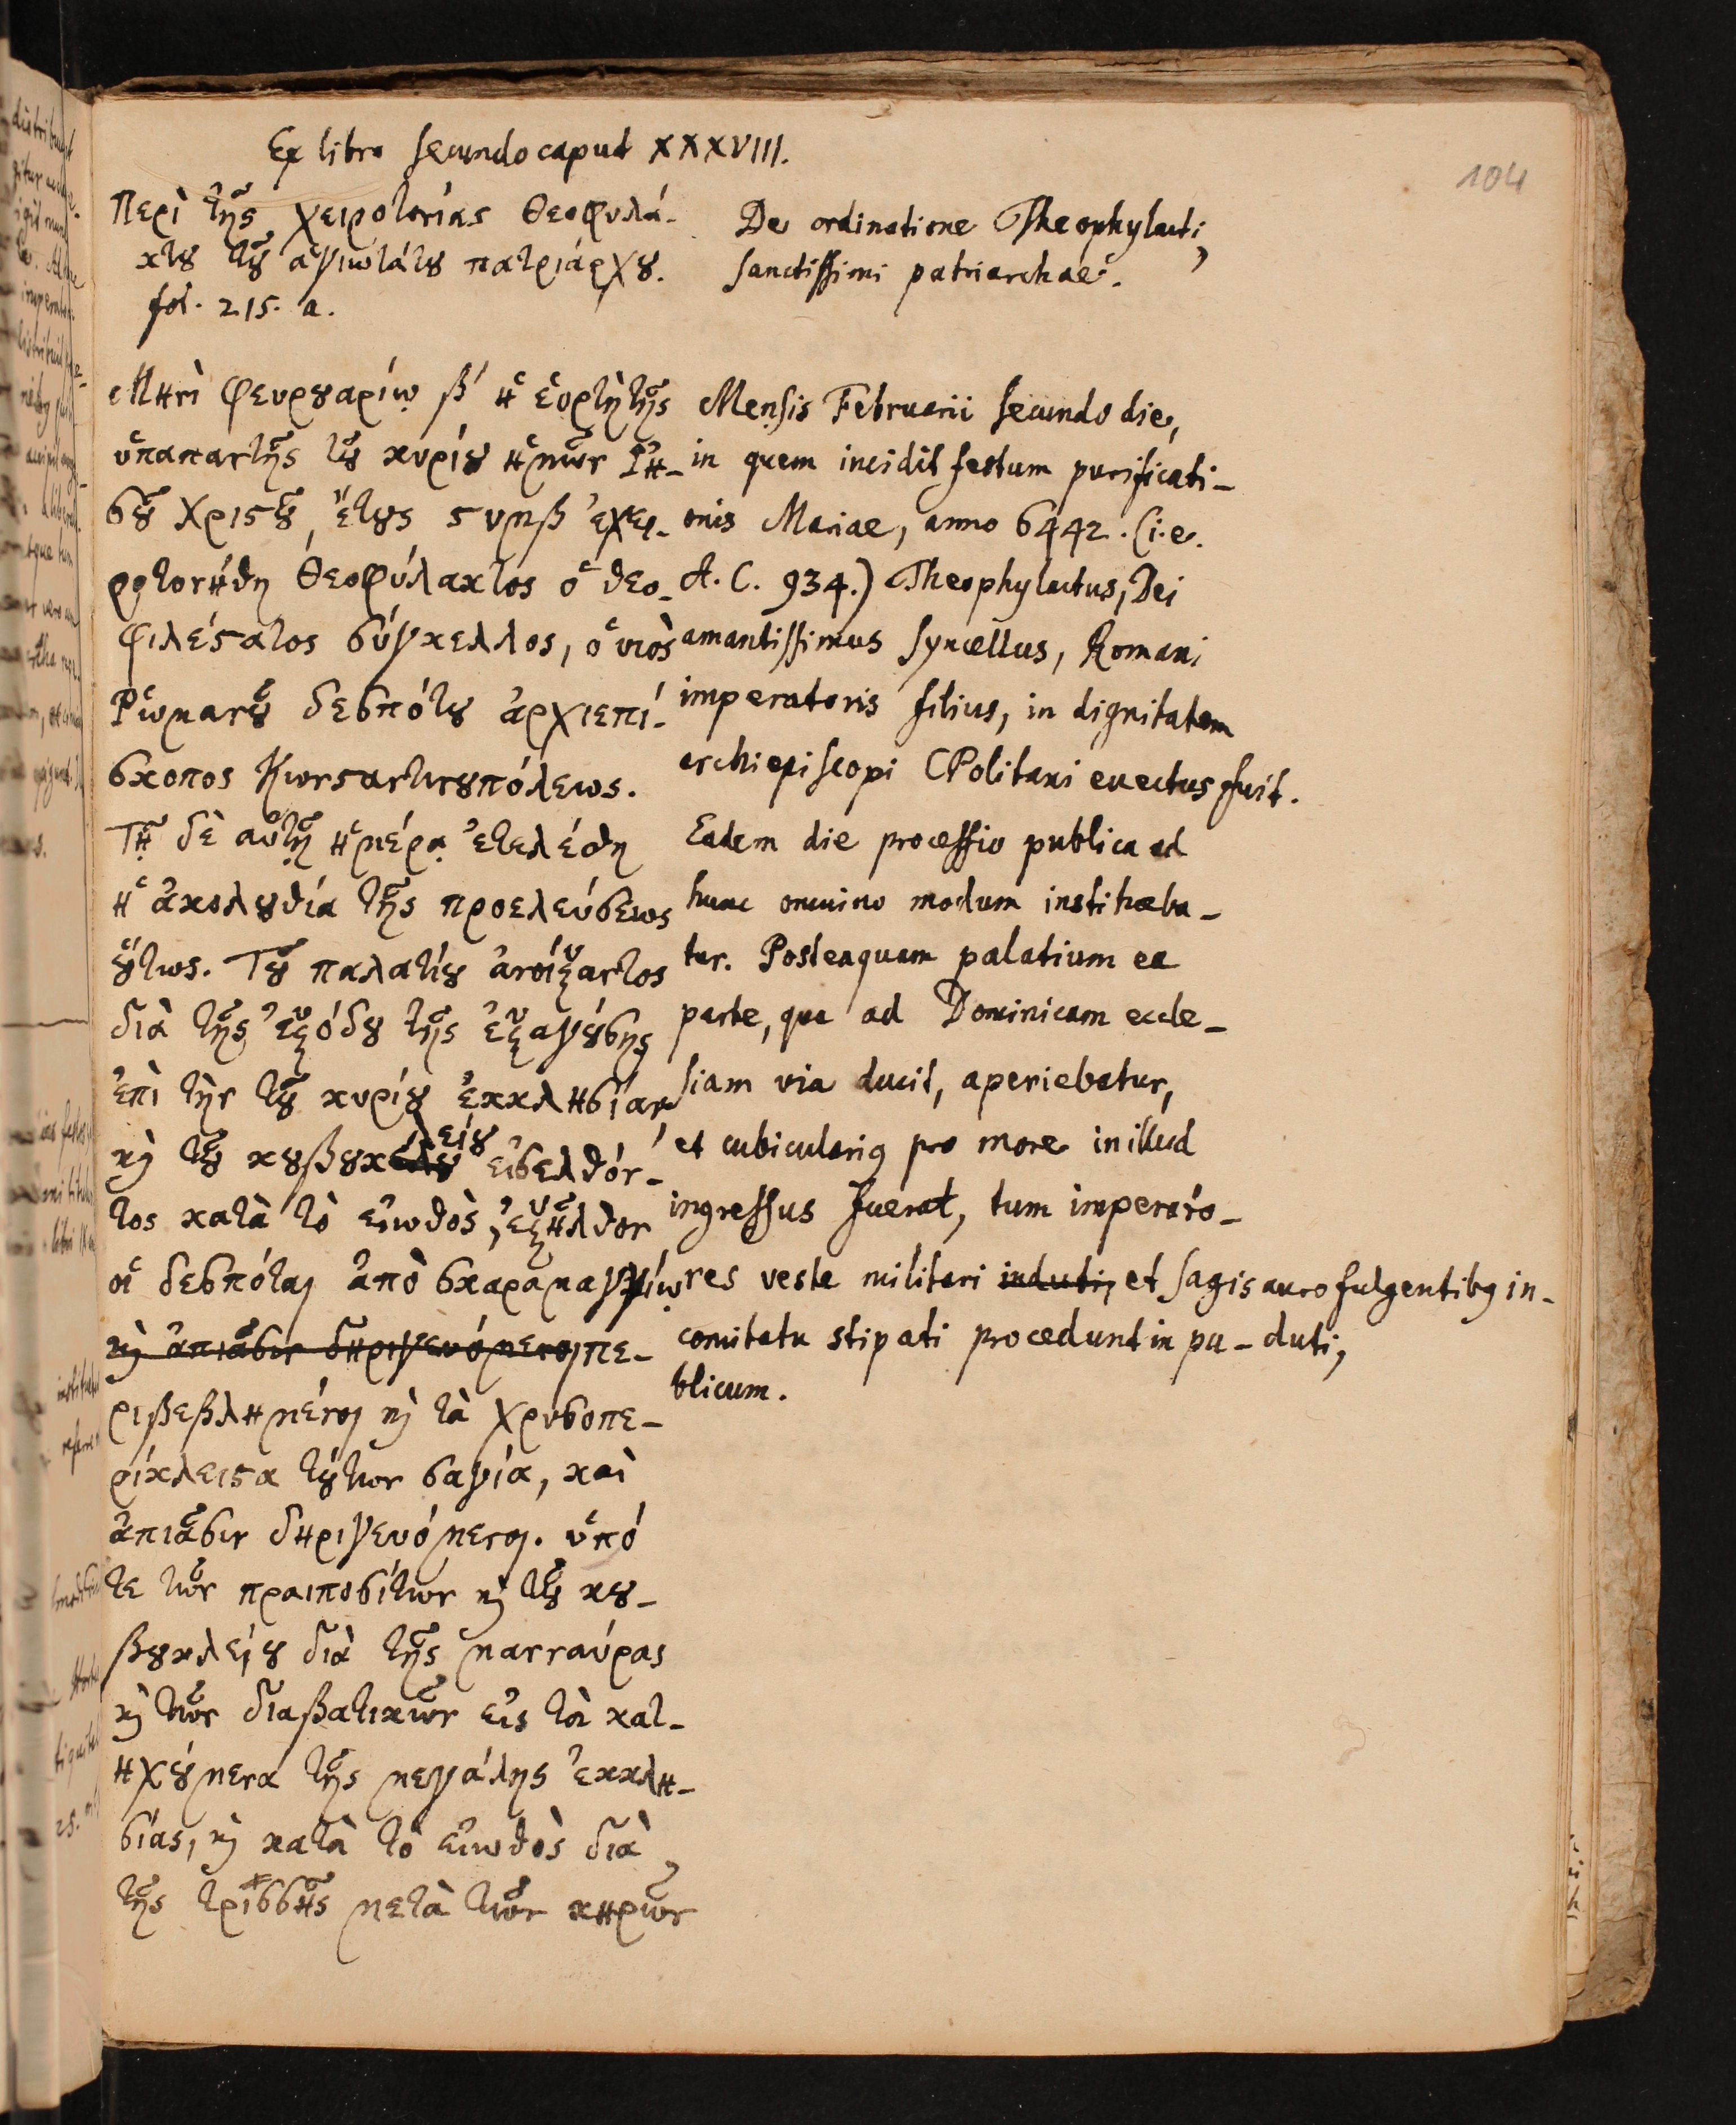 Ex libro secundo caput XXXVIII.
104
Περὶ τῆς χειροτονίας Θεοφυλά-
κτȣ τȣ͂ ἁγιωτάτȣ πατριάρχȣ.
fol. 215. a.
Μηνὶ Φευρȣαρίῳ β' ἡ ἑορτὴ τῆς
ὑπαπαντῆς τȣ͂ κυρίȣ ἡμῶν Ἰη-
σȣ͂ Χριϛȣ͂, ἔτȣς ϛυμβ ἐχει-
ροτονήθη Θεοφύλακτος ὁ θεο-
φιλέϛατος σύγκελλος, ὁ υἱὸς
Ῥωμανȣ͂ δεσπότȣ ἀρχιεπί-
σκοπος Κωνϛαντινȣπόλεως.
Τῇ δὲ αὐτῇ ἡμέρᾳ ἐτελέσθη
ἡ ἀκολȣθία τῆς προελεύσεως
ȣ̔́τως. Τȣ͂ παλατίȣ ἀνοίξαντος
διὰ τῆς ἐξόδȣ τῆς ἐξαγȣ́σης
ἐπὶ τὴν τȣ͂ κυρίȣ ἐκκλησίαν
ϗ τȣ͂ κȣβȣκλείȣ εἰσελθόν-
τος κατὰ τὸ εἰωθὸς, ἐξῆλθον
οἱ δεσπόται ἀπὸ σκαραμαγγίων
ϗ ἀπιᾶσιν δηριγευόμενοι πε-
ριβεβλημένοι ϗ τὰ χρυσοπε-
ρίκλειϛα τȣ́των σαγία, καὶ
ἀπιᾶσιν δηριγευόμενοι. ὑπό
τε τῶν πραιποσίτων ϗ τȣ͂ κȣ-
βȣκλείȣ διὰ τῆς μανναύρας
ϗ τῶν διαβατικῶν εἰς τὰ κατ-
ηχȣ́μενα τῆς μεγάλης ἐκκλη-
σίας, ϗ κατὰ τὸ εἰωθὸς διὰ
τῆς τρισσῆς μετὰ τῶν κηρῶν
De ordinatione Theophylacti,
sanctissimi patriarchae.
Mensis Februarii secundo die,
in quem incidit festum purificati-
onis Mariae, anno 6442. (i.e.
A. C. 934.) Theophylactus, Dei
amantissimus syncellus, Romani
imperatoris filius, in dignitatem
archiepiscopi CPolitani evectus fuit.
Eadem die processio publica ad
hunc omnino modum institueba-
tur. Posteaquam palatium ea
parte, qua ad Dominicam eccle-
siam via ducit, aperiebatur,
et cubicularig pro more in illud
ingressus fuerat, tum imperato-
res veste militari induti, et sagis auro fulgentibg in-
duti,
comitatu stipati procedunt in pu-
blicum.